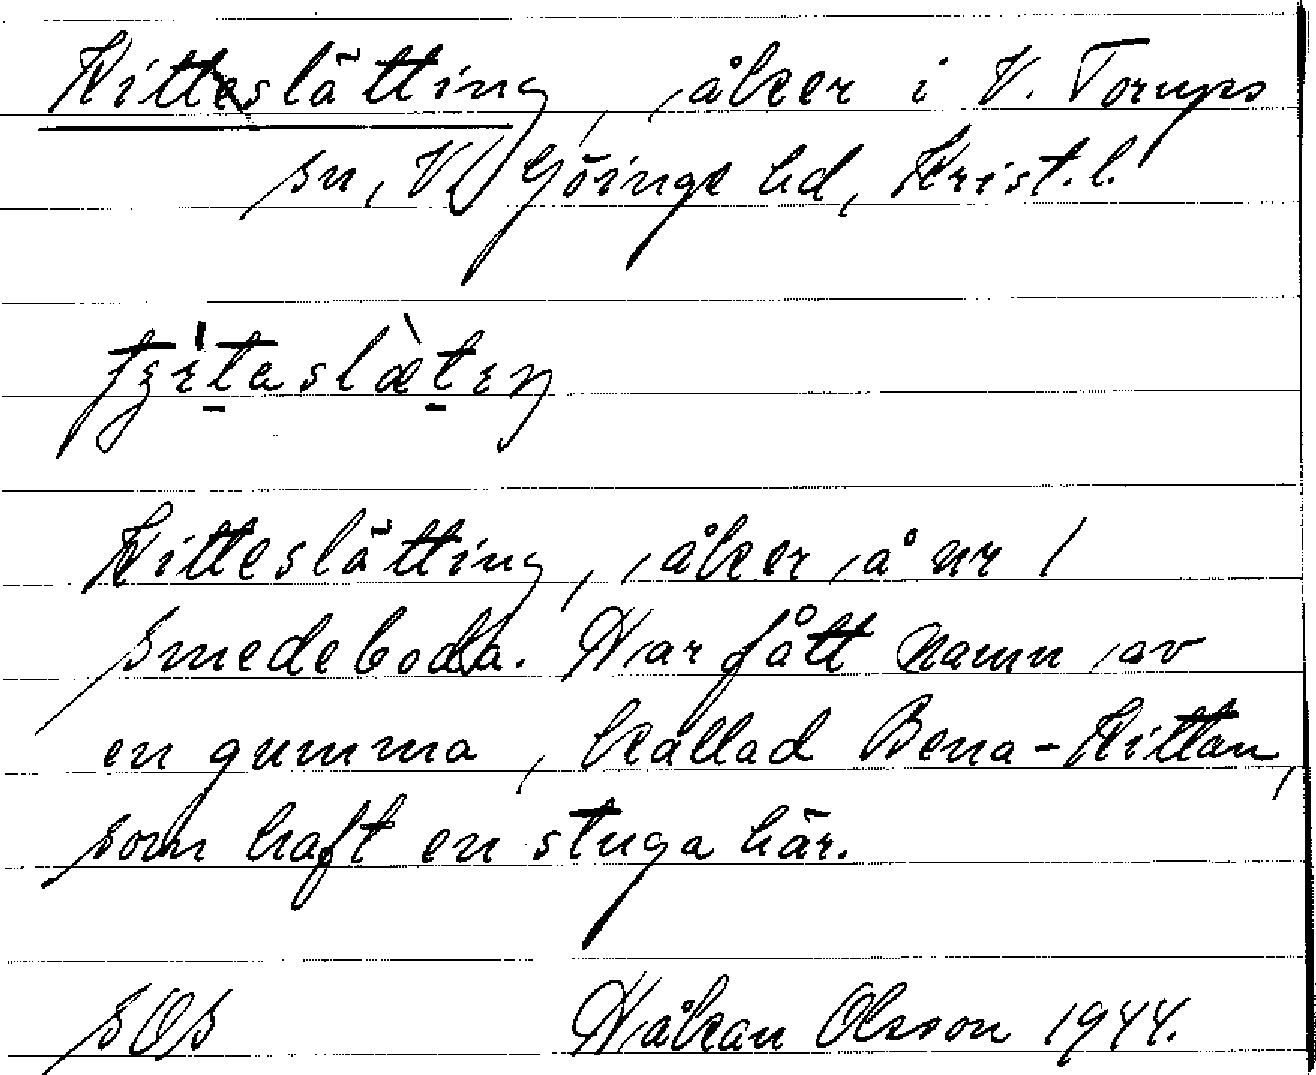 Kitteslätting, åker i V. Torups
sn, V. Göinge hd, Krist. l.
Kitteslätting, åker å nr 1
Smedeboda. Har fått namn av
en gumma, kallad Bena-Kittan,
som haft en stuga här.
SOS Håkan Olsson 1944.